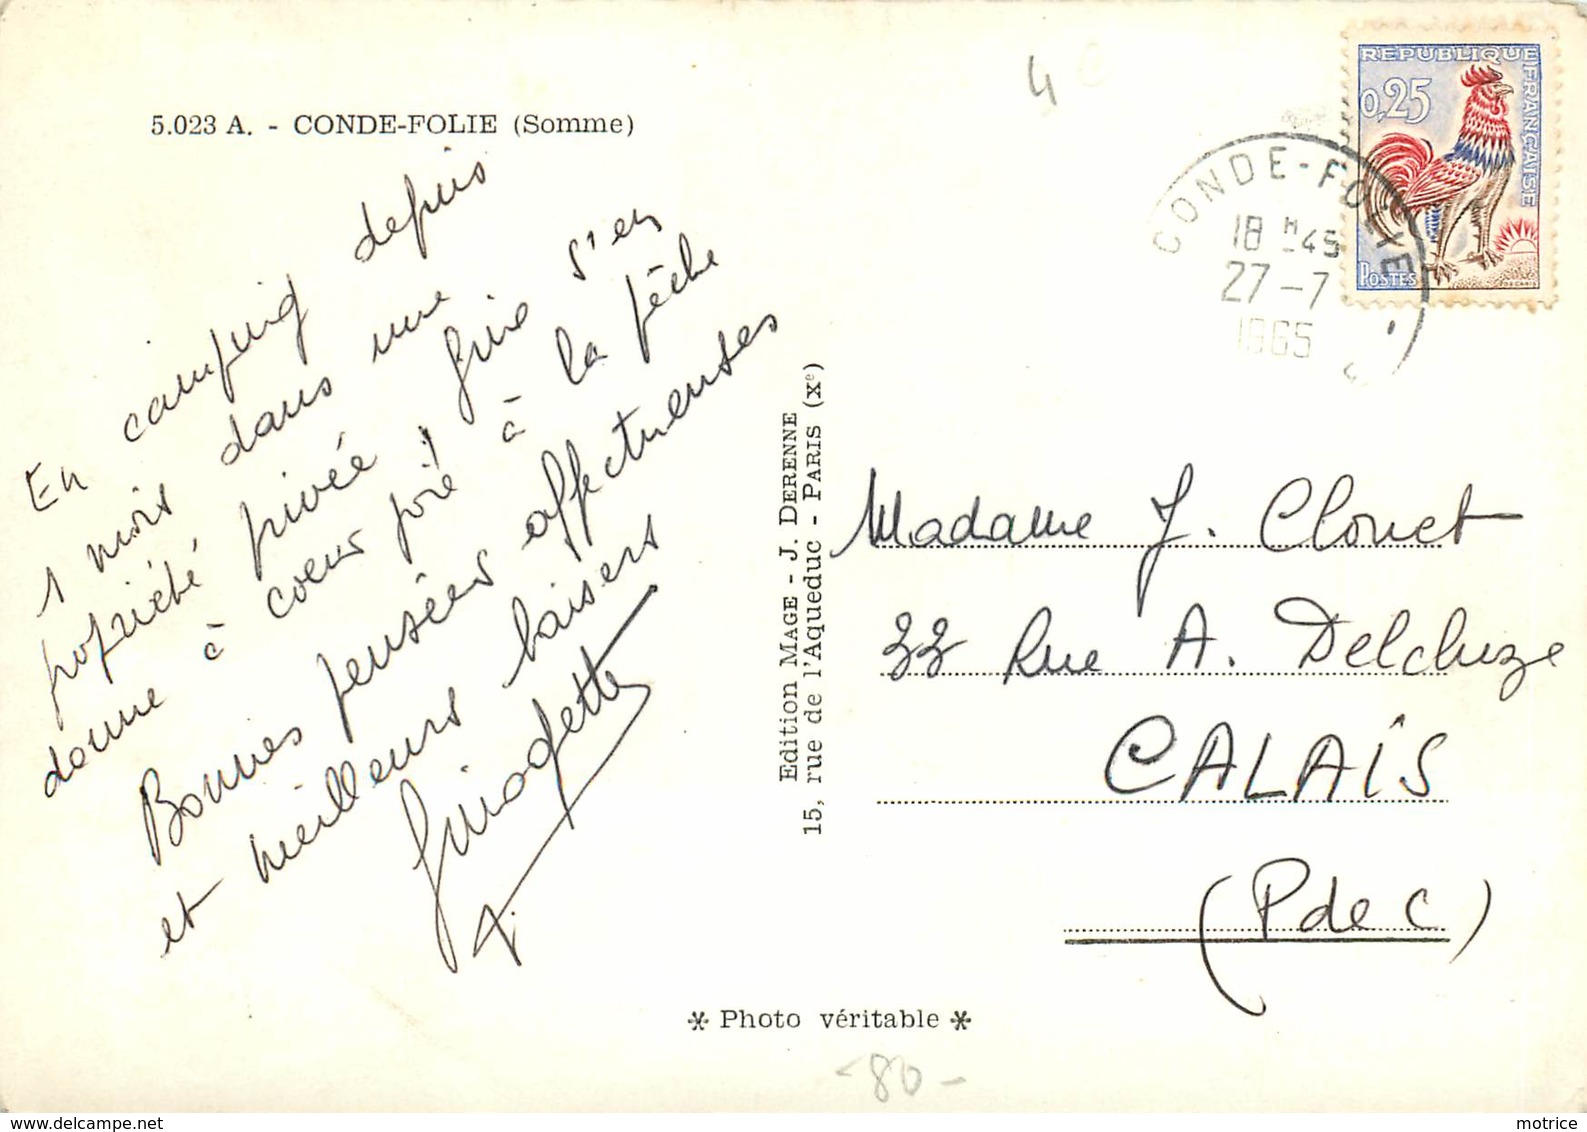 5.023 A. - CONDE-FOLIE (Somme)
En camping depuis
1 mois dans une
propriété privée, Guié s'en
donne à coeur joie à la pêche
Bonnes pensées affectueuses
et meilleurs baisers
Ginodette
4
REPUBLIQUE FRANÇAISE
0,25
POSTES
DECARIS
CONDE-FOLIE
18 H 45
27 - 7
1965
Edition MAGE - J. DERENNE
15, rue de l'Aqueduc - PARIS (Xe)
Madame J. Clouet
33 Rue A. Delcluze
CALAÏS
(P de C)
* Photo véritable *
- 80 -
motrice